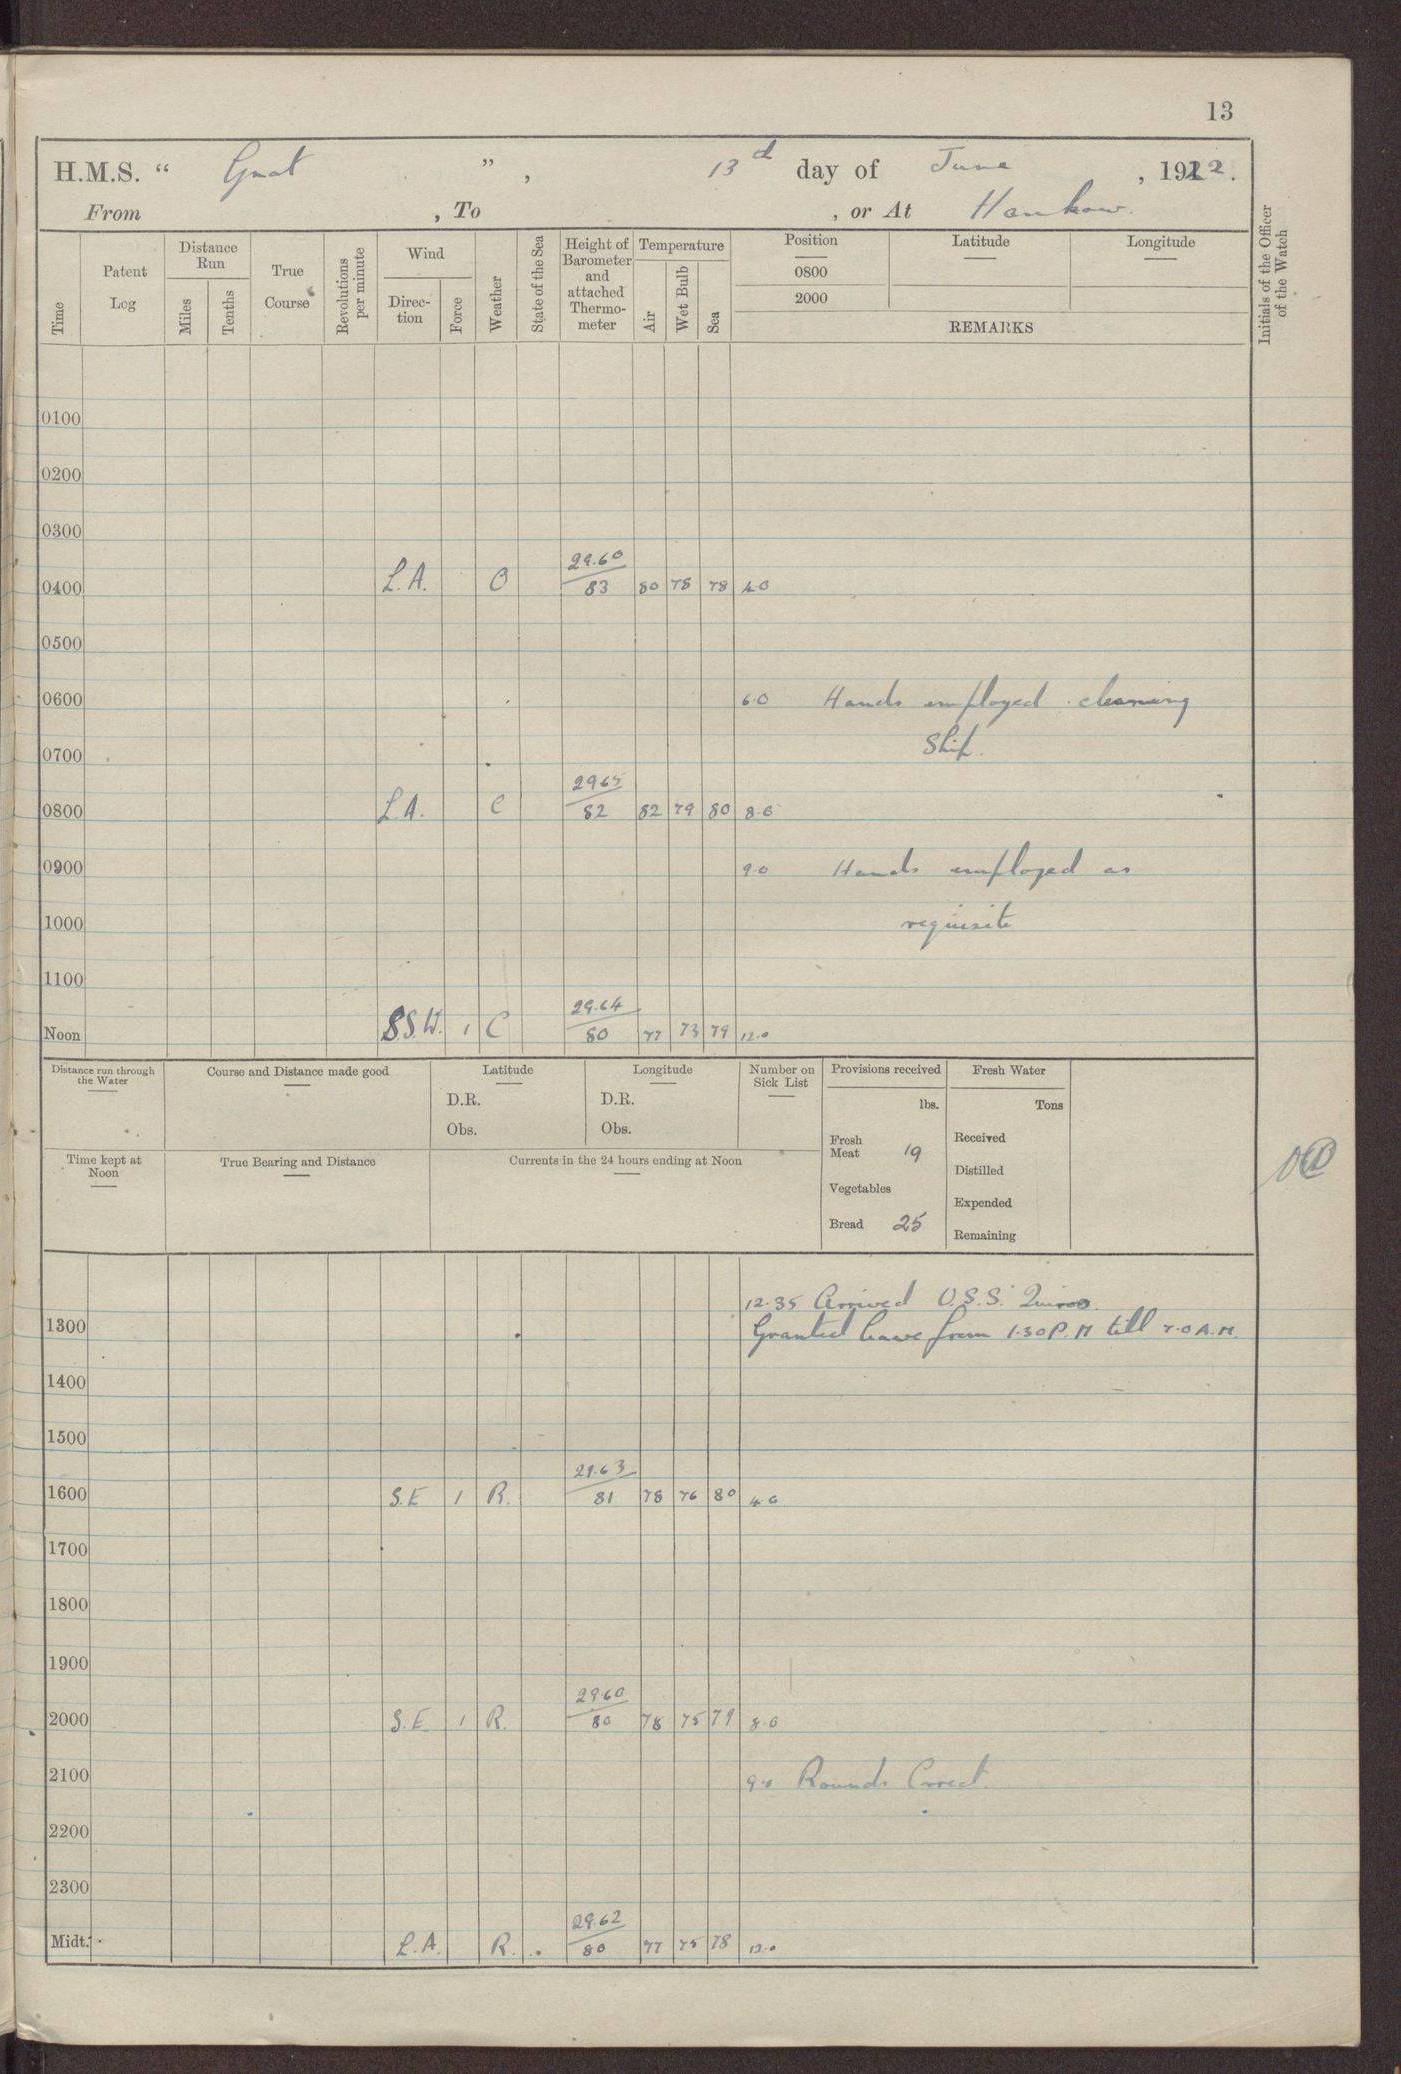 13
H.M.S. “ Gnat ” , 13 day of June , 1922.
From , To , or At Hankow.
Time
Patent Log
Distance Run
Miles
Tenths
True Course
Revolutions per minute
Wind
Direction
Force
Weather
State of the Sea
Height of Barometer and attached Thermometer
Temperature
Air
Wet Bulb
Sea
Position
0800
2000
Latitude
Longitude
REMARKS
Initials of the Officer of the Watch
0100
0200
0300
29.60
0400 L.A. O 83 80 78 78 4.0
0500
0600 6.0 Hands employed cleaning
Ship.
0700
2965
0800 L.A. C 82 82 79 80 8.0
0900 9.0 Hands employed as
1000 requisite
1100
29.64
Noon S.S.W. 1 C 80 77 73 79 12.0
Distance run through the Water
Course and Distance made good
Latitude
D.R.
Obs.
Longitude
D.R.
Obs.
Number on Sick List
Provisions received
lbs.
Fresh Meat 19
Vegetables
Bread 25
Fresh Water
Tons
Received
Distilled
Expended
Remaining
Time kept at Noon
True Bearing and Distance
Currents in the 24 hours ending at Noon
12.35 Arrived U.S.S. Quiros.
1300 Granted leave from 1.30 P.M till 7.0 A.M.
1400
1500
29.63
1600 S.E 1 R. 81 78 76 80 4.0
1700
1800
1900
29.60
2000 S.E. 1 R. 80 78 75 79 8.0
2100 9.0 Rounds Correct.
2200
2300
29.62
Midt. L.A. R. 80 77 75 78 12.0